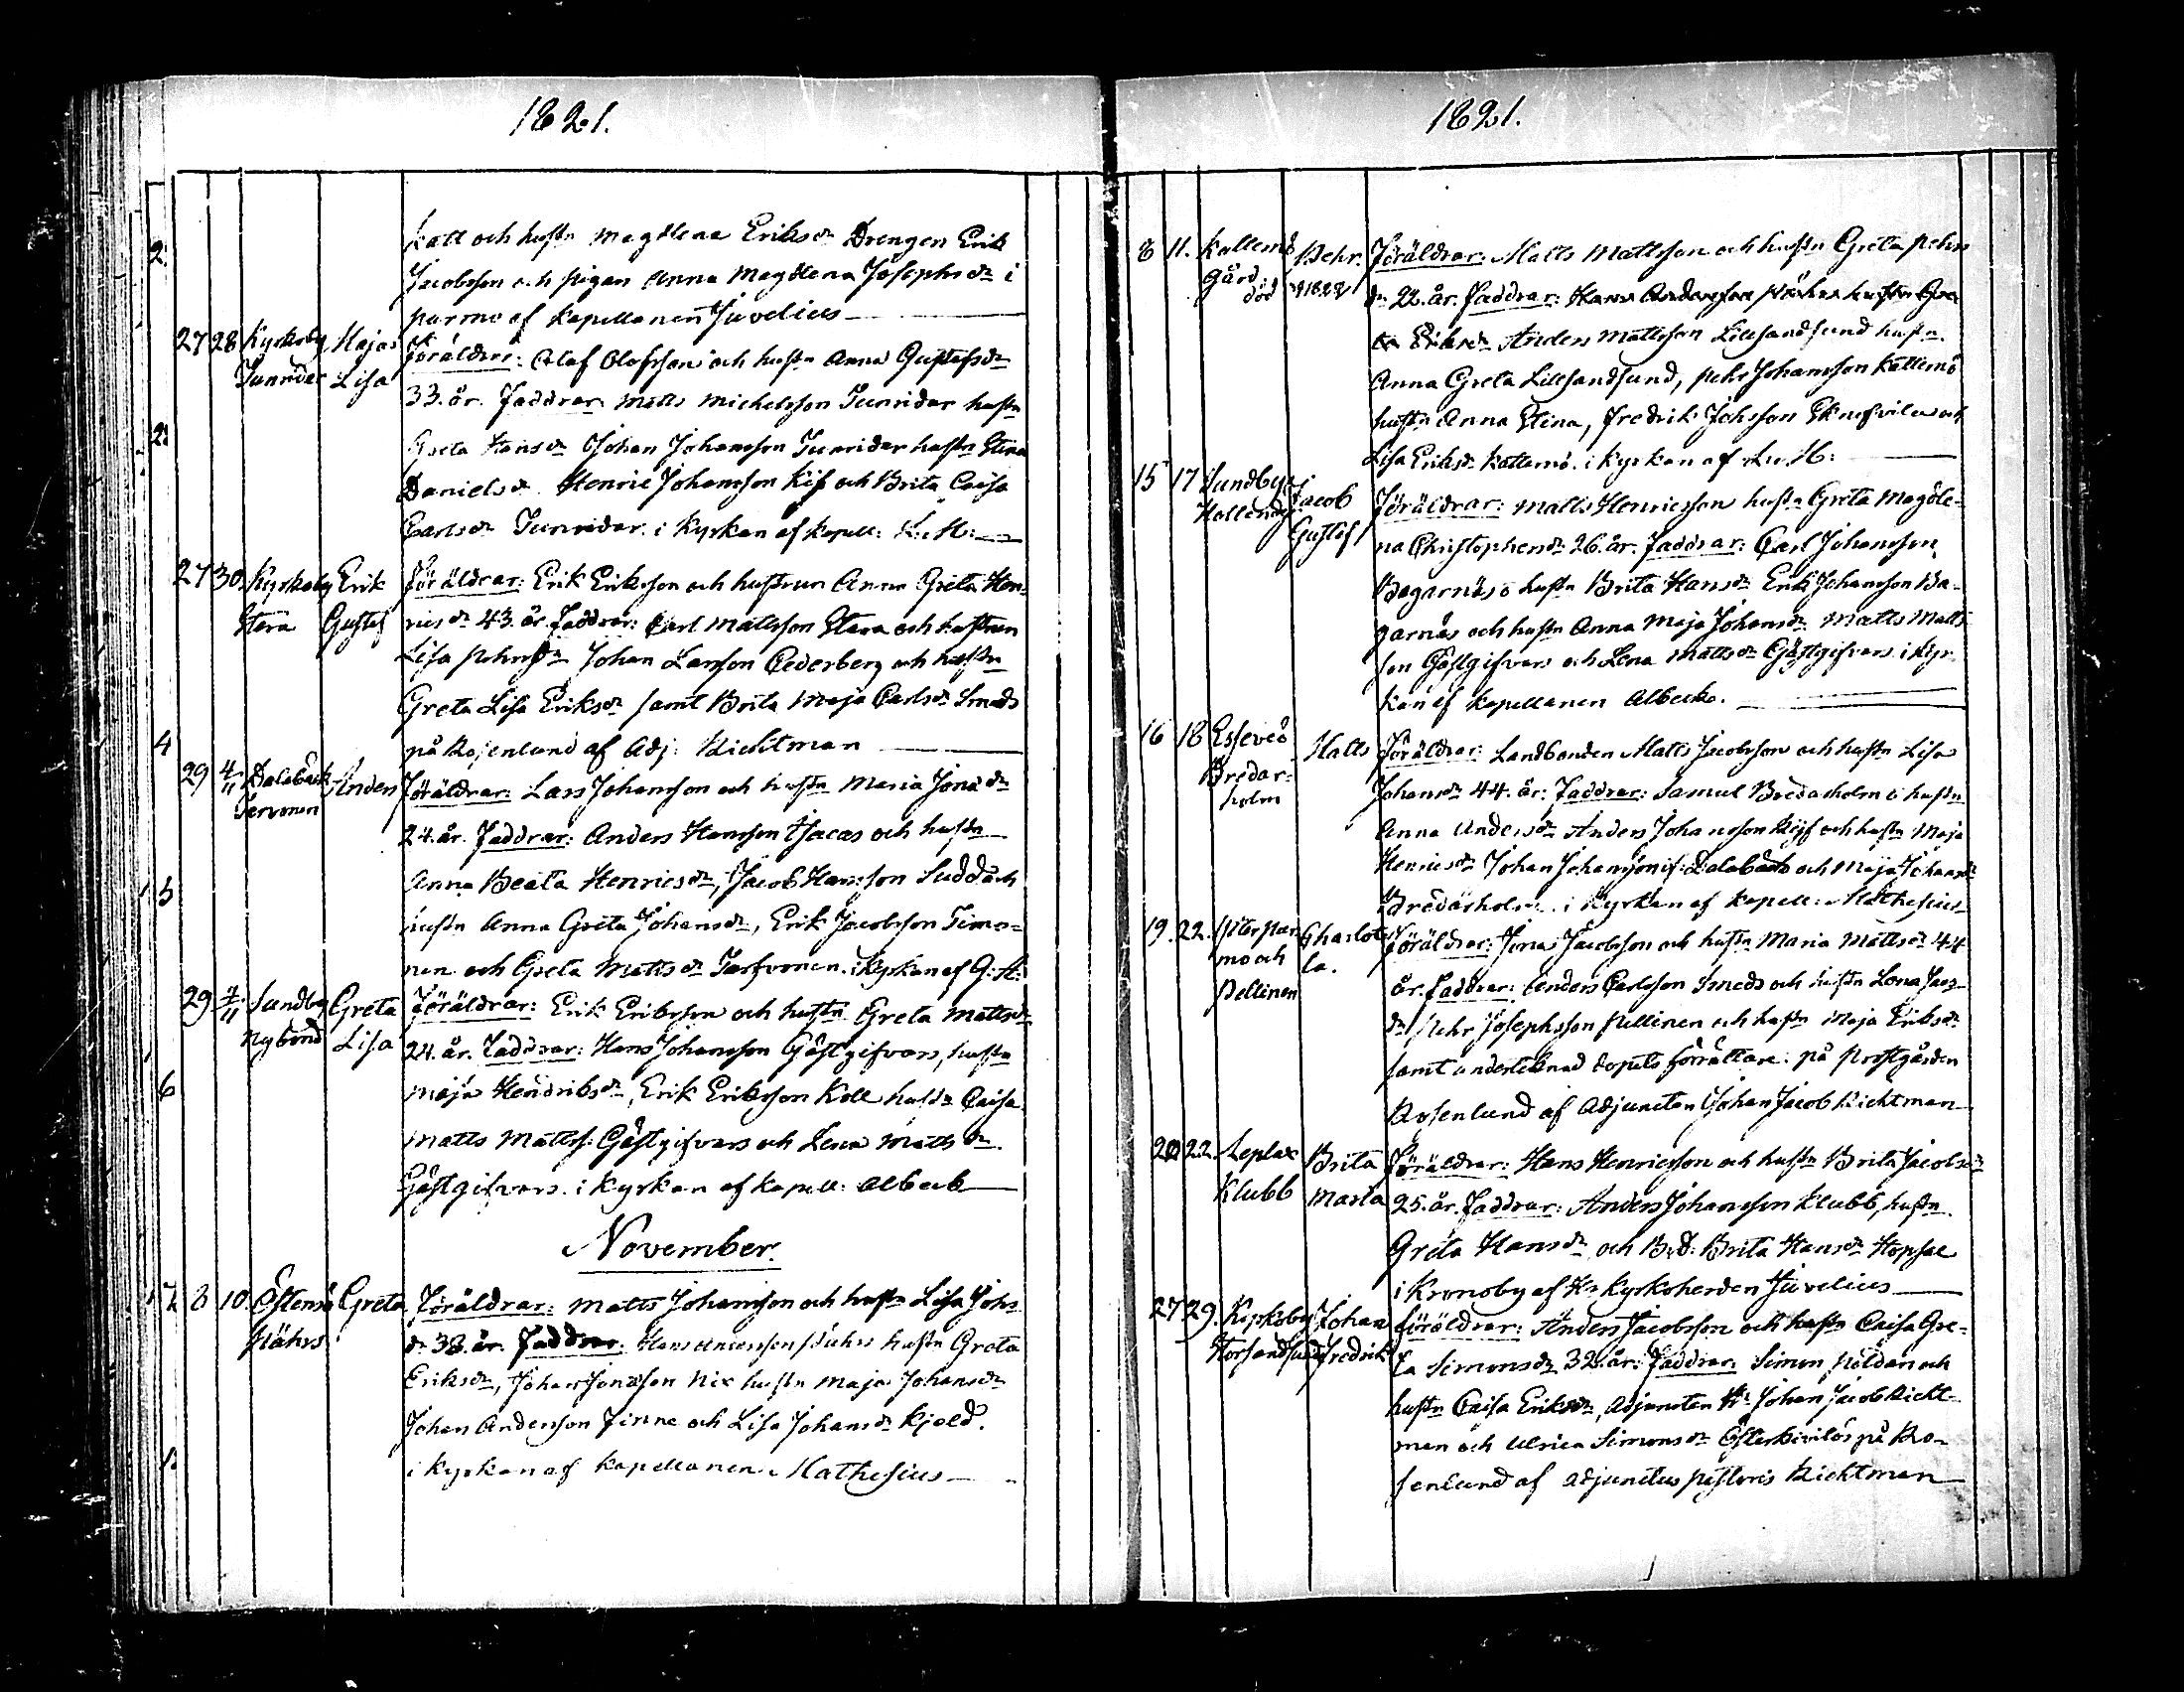 1821.
katt och hustn Magdlena Eriksdr Drengen Erik
Jacobsson och pigan Anna Magdlena Josephsdr i
purmo af Kapellanen Juvelius
27 28 Kyrkoby Maja Föräldrar: Olaf Olofsson och hustn Anna Gustafsdr
Junridar Lisa 33. år. Faddrar: Matts Michelsson Sunridar hustn
Greta Hansdr Johan Johansson Sunridar hustn Stina
Danielsdr Henric Johansson Kis och Brita Caisa
Carlsdr Sunridar. i Kyrkan af Kapell: L. M:
27 30. Kyrkoby Erik Föräldrar: Erik Eriksson och hustrun Anna Greta Hen-
Stara Gustaf ricsdr 43. år. Faddrar: Carl Mattsson Stara och hustrun
Lisa Pehrsdr Johan Larsson Cederberg och hustn
Greta Lisa Eriksdr samt Brita Maja Carlsdr Smeds
på Rosenlund af Adj: Kicktman
29 4/11 Dalaback Anders Föräldrar: Lars Johansson och hustn Maria Jonsdr
Tervonen 24. år. Faddrar: Anders Hansson Isacas och hustn
Anna Beata Henricsdr, Jacob Hansson Sudd och
hustn Anna Greta Johansdr, Erik Jacobsson Timo-
nen och Greta Mattsdr Tarfvonen. i Kyrkan af G. H:
29 4/11 Sundby Greta Föräldrar: Erik Eriksson och hustn Greta Mattsdr
Nybond Lisa 24. år. Faddrar: Hans Johansson Gästgifvars, hustn
Maja Hendriksdr, Erik Eriksson Koll hustn Caisa
Matts Mattss: Gästgifvars och Lena Mattsdr
Gästgifvars. i Kyrkan af Kapell: Albeck
November.
8 10 Östensö Greta Föräldrar: Matts Johansson och hustn Lisa Johs-
Nährs dr 38. år. Faddrar: Hans Andersson Nährs hustn Greta
Eriksdr, Johan Jonasson Nix hustn Maja Johansdr
Johan Andersson Finne och Lisa Johansdr Kjeld.
i Kyrkan af Kapellanen Mathesius
1821.
8 11. Kallemö Pehr. Föräldrar: Matts Mattsson och hustn Greta Pehrs
gård död 1822 dr 22. år. Faddrar: Hans Andersson hustn Gre
ta Eriksdr Anders Mattsson Lillsandsund hustn
Anna Greta Lillsandsund, Pehr Johansson Kallemö
hustn Anna Stina, Fredrik Johsson och
Lisa Eriksdr Kallemö. i Kyrkan af L. M:
15 17 Sundby Jacob Föräldrar: Matts Henricsson hustn Greta Magdle-
Hollandz Gustaf na Christophersdr 26. år. Faddrar: Carl Johansson
Bagarnäs o hustn Brita Hansdr Erik Johansson Ba-
garnäs och hustn Anna Maja Johansdr Matts Matts-
son Gästgifvars och Lena Mattsdr Gästgifvars. i Kyr-
kan af Kapellanen Albecke.
16 18 Esseveö Matts Föräldrar: Landbonden Matts Jacobsson och hustn Lisa
Bredar- Johansdr 44. år: Faddrar: Samul Bredarholm o hustn
holm Anna Andersdr Anders Johansson och hustn Maja
Henricsdr Johan Johansson Dalaback och Maja Johansdr
Bredarholm. i Kyrkan af Kapell: Mathesius
19. 22. Ytterpur- Charlot- Föräldrar: Jonas Jacobsson och hustn Maria Mattsdr 44
mo och ta. år. Faddrar: Anders Carlsson Smeds och hustn Lena Jacs-
Pellinen dr Pehr Josephsson Pellinen och hustn Maja Eriksdr
samt undertecknad dopets förrättare. på Prostgården
Rosenlund af Adjuncten Johan Jacob Kicktman
20 22. Leplax Brita Föräldrar: Hans Henricsson och hustn Brita Jacobsdr
Klubb Maria 25. år. Faddrar: Anders Johansson Klubb, hustn
Greta Hansdr och Bd: Brita Hansdr Hopsal
i Kronoby af Hr Kyrkoherden Juvelius
27 29. Kyrkoby Johan Föräldrar: Anders Jacobsson och hustn Caisa Gre-
Storsandsund Fredrik ta Simonsdr 32. år. Faddrar: Simon Pöldan och
hustn Caisa Eriksdr, Adjuncten Hr Johan Jacob Kickt-
man och Ulrica Simonsdr på Ro-
senlund af adjunctus pastoris Kicktman